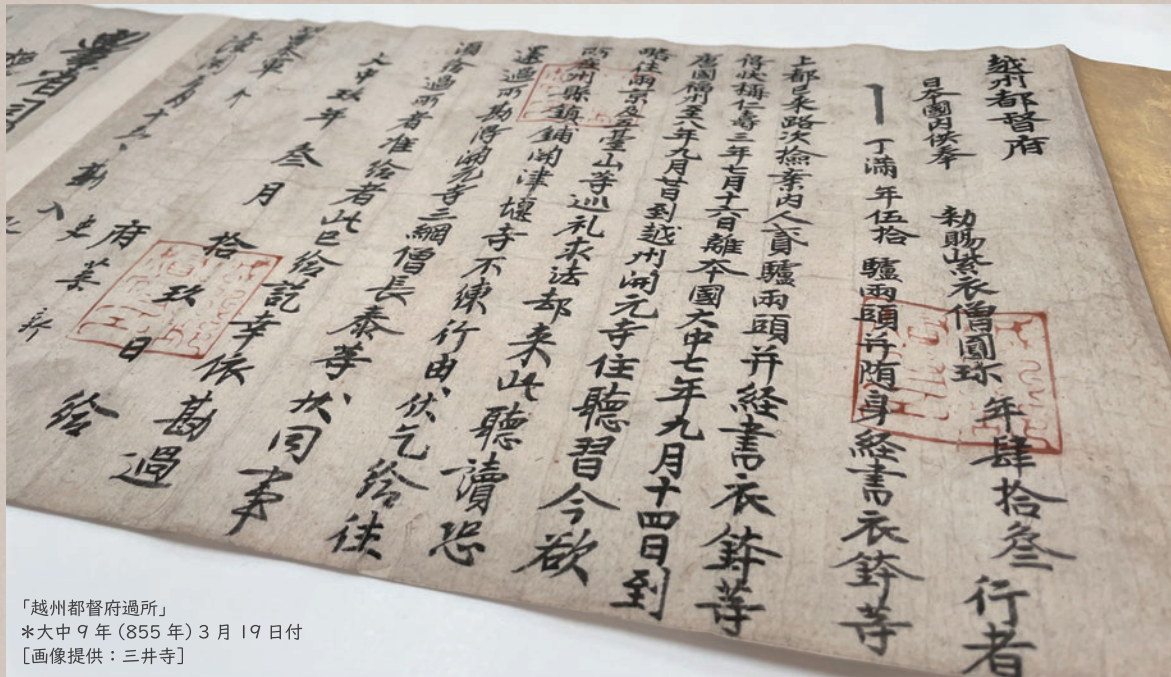 越州都督府
日夲國内供奉 勅賜紫衣僧圓珎年肆拾叁 行者
丁滿年伍拾 驢兩頭并随身経書衣鉢等
上都已来路次撿案内人貳驢兩頭并経書衣鉢等
得状稱仁壽三年七月十六日離夲國大中七年九月十四日到
唐國福州至八年九月廿日到越州開元寺住聽習今欲
略往兩京及五臺山等巡礼求法却来此聽讀恐
所在州縣鎮鋪関津堰寺不練行由伏乞給往
還過所勘得開元寺三綱僧長泰等状同事
須給過所者准給者此已給訖幸依勘過
大中玖年叁月拾玖日給
府葉新
參軍
史
潼関五月十五日勘入
「越州都督府過所」
＊大中9年(855年)3月19日付
[画像提供：三井寺]